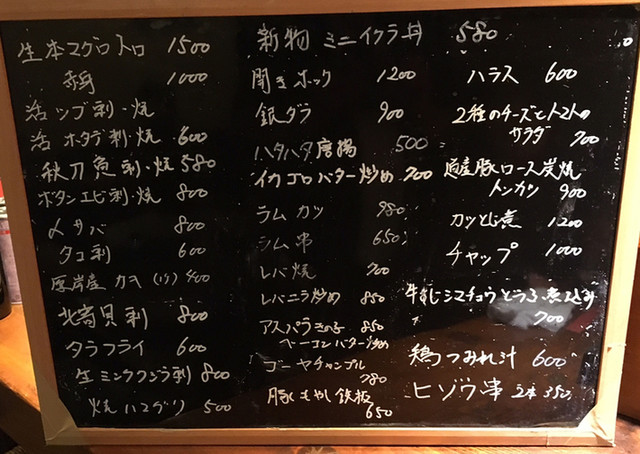 生本マグロトロ 1500
赤身 1000
活ツブ刺・焼
活ホタテ刺・焼 600
秋刀魚刺・焼 580
ボタンエビ刺・焼 800
〆サバ 800
タコ刺 600
厚岸産カキ(1ケ) 400
北寄貝刺 800
タラフライ 600
生ミンククジラ刺 800
焼ハマグリ 500
新物ミニイクラ丼 580
開きホッケ 1200
銀ダラ 900
ハタハタ唐揚 500
イカゴロバター炒め 700
ラムカツ 980
ラム串 650
レバ焼 700
レバニラ炒め 850
アスパラきのこ 850
ベーコンバター炒め
ゴーヤチャンプル
780
豚もやし鉄板
650
ハラス 600
2種のチーズとトマトの
サラダ 700
道産豚ロース炭焼
トンカツ 900
カツとじ煮 1200
チャップ 1000
牛すじシマチョウとうふ煮込み
700
鶏つみれ汁 600
ヒゾウ串 2本 350